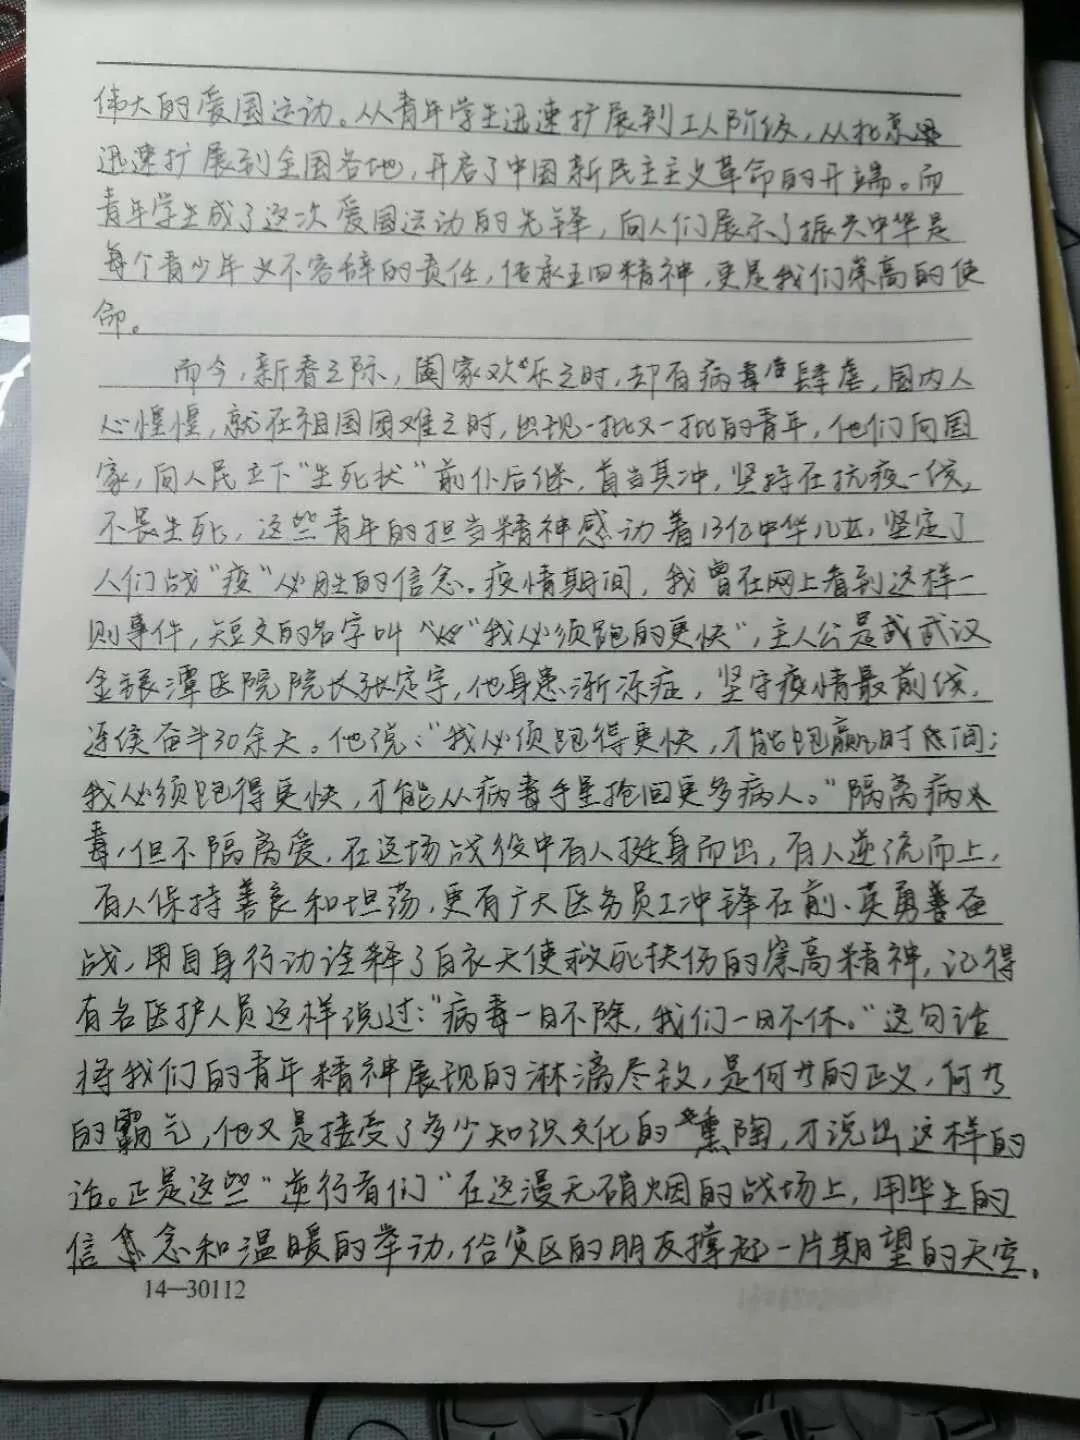 伟大的爱国运动。从青年学生迅速扩展到工人阶级，从北京
迅速扩展到全国各地，开启了中国新民主主义革命的开端。而
青年学生成了这次爱国运动的先锋，向人们展示了振兴中华是
每个青少年义不容辞的责任，传承五四精神，更是我们崇高的使
命。
而今，新春之际，阖家欢乐之时，却有病毒肆虐，国内人
心惶惶，就在祖国困难之时，出现一批又一批的青年，他们向国
家，向人民立下“生死状”前仆后继，首当其冲，坚持在抗疫一线，
不畏生死，这些青年的担当精神感动着13亿中华儿女，坚定了
人们战“疫”必胜的信念。疫情期间，我曾在网上看到这样一
则事件，短文的名字叫“我必须跑的更快”，主人公是武武汉
金银潭医院院长张定宇，他身患渐冻症，坚守疫情最前线，
连续奋斗30余天。他说：“我必须跑得更快，才能跑赢时间；
我必须跑得更快，才能从病毒手里抢回更多病人。”隔离病
毒，但不隔离爱，在这场战役中有人挺身而出，有人逆流而上，
有人保持善良和坦荡，更有广大医务员工冲锋在前、英勇奋
战，用自身行动诠释了白衣天使救死扶伤的崇高精神，记得
有名医护人员这样说过：“病毒一日不除，我们一日不休。”这句话
将我们的青年精神展现的淋漓尽致，是何等的正义，何等
的霸气，他又是接受了多少知识文化的熏陶，才说出这样的
话。正是这些“逆行者们”在这漫无硝烟的战场上，用毕生的
信念和温暖的举动，给灾区的朋友撑起一片期望的天空，
14—30112